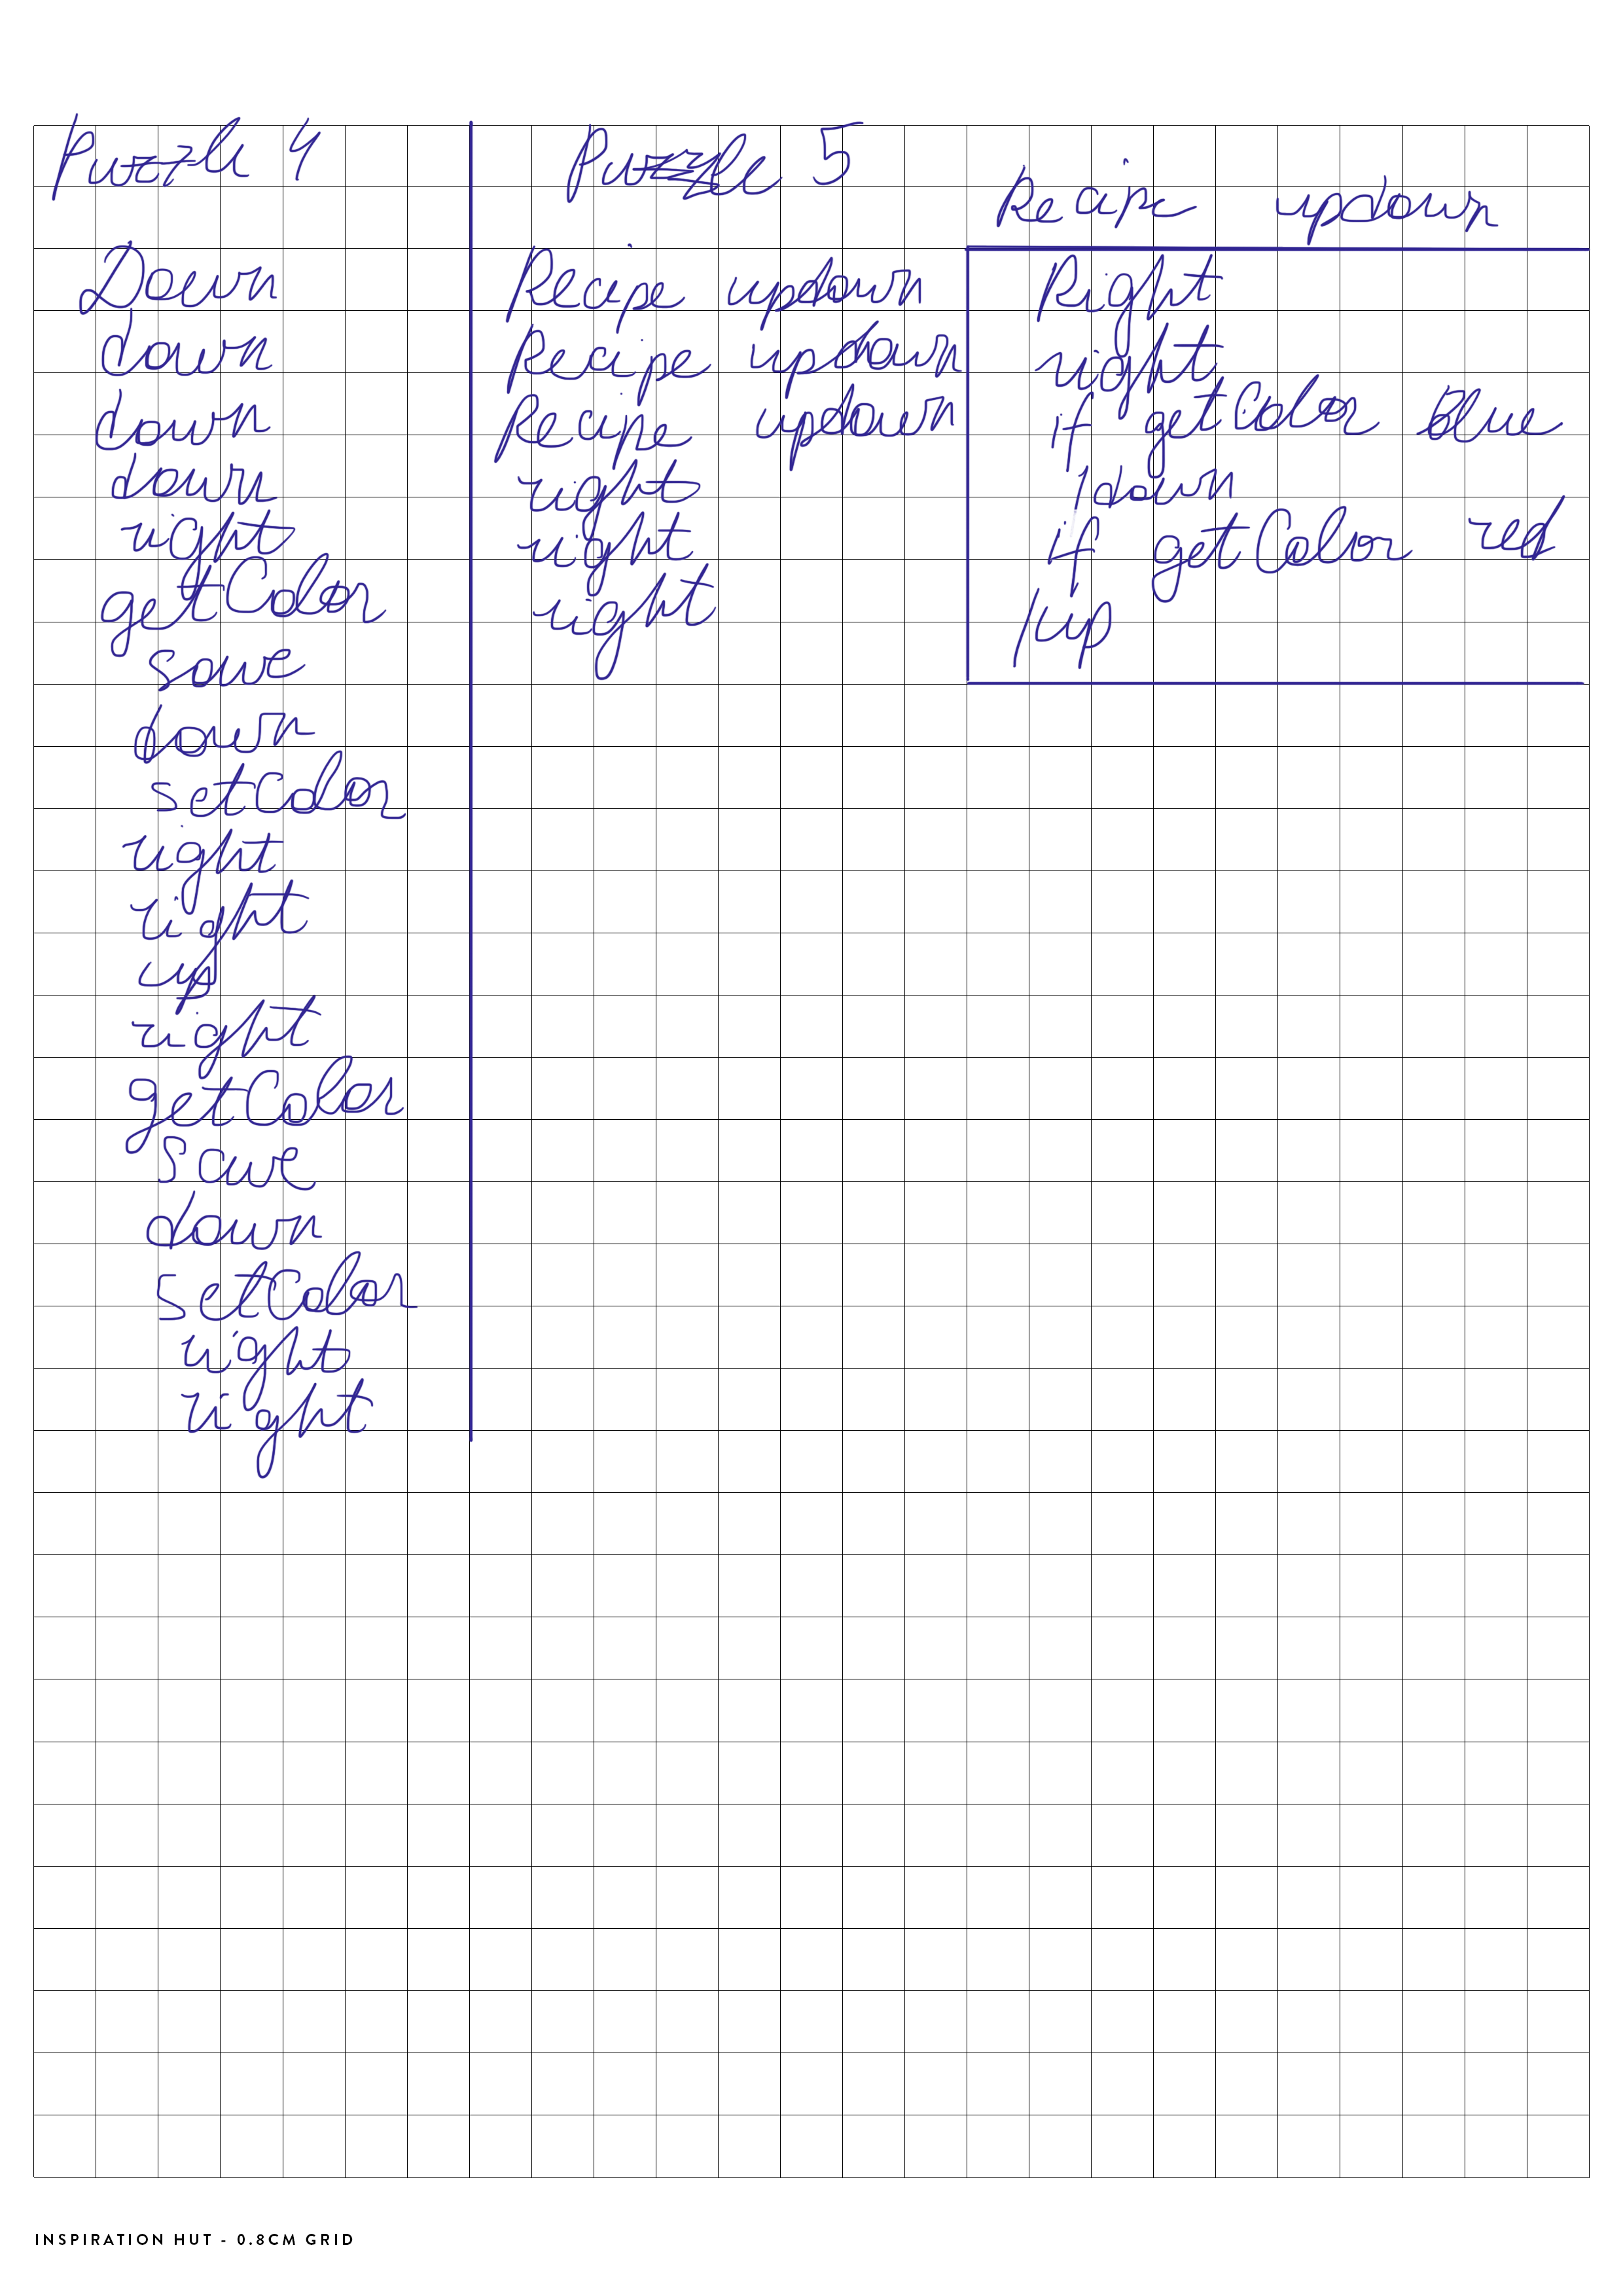 Puzzle 4
Down
down
down
down
right
getColor
save
down
setColor
right
right
up
right
getColor
save
down
setColor
right
right
Puzzle 5
Recipe updown
Recipe updown
Recipe updown
right
right
right
Recipe updown
Right
right
if getColor Blue
1down
if getColor red
1up
INSPIRATION HUT - 0.8CM GRID